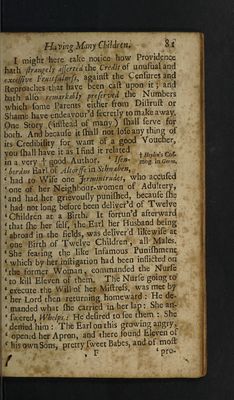 Having Many Children. 81
I might here take notice how Providence
hath strangely asserted the Credit of unusual and
excessive Fruitfulness, against the Censures and
Reproaches that have been cast upon it; and
hath also remarkably preserved the Numbers
which some Parents either from Distrust or
Shame have endeavour'd secretly to make away.
One Story (instead of many) shall serve for
both. And because it shall not lose any thing of
its Credibility for want of a good Voucher,
you shall have it as I find it related
in a very † good Author.
† Heylin's Cos-
mog. in Germ.
‘ Isen-
‘ bardus Earl of Altorffe in Schwaben,
‘ had to Wife one Jermintrudes, who accused
‘ one of her Neighbour-women of Adultery,
‘ and had her grievously punished, because she
‘ had not long before been deliver'd of Twelve
‘ Children at a Birth. It fortun'd afterward
‘ that she her self, the Earl her Husband being
‘ abroad in the fields, was deliver'd likewise at
‘ one Birth of Twelve Children, all Males.
‘ She fearing the like Infamous Punishment
‘ which by her instigation had been inflicted on
‘ the former Woman, commanded the Nurse
‘ to kill Eleven of them. The Nurse going to
‘ execute the Will of her Mistress, was met by
‘ her Lord then returning homeward: He de-
‘ manded what she carried in her lap: She an-
‘ swered, Whelps: He desired to see them: She
‘ denied him: The Earl on this growing angry,
‘ opened her Apron, and there found Eleven of
‘ his own Sons, pretty sweet Babes, and of most
F ‘ pro-